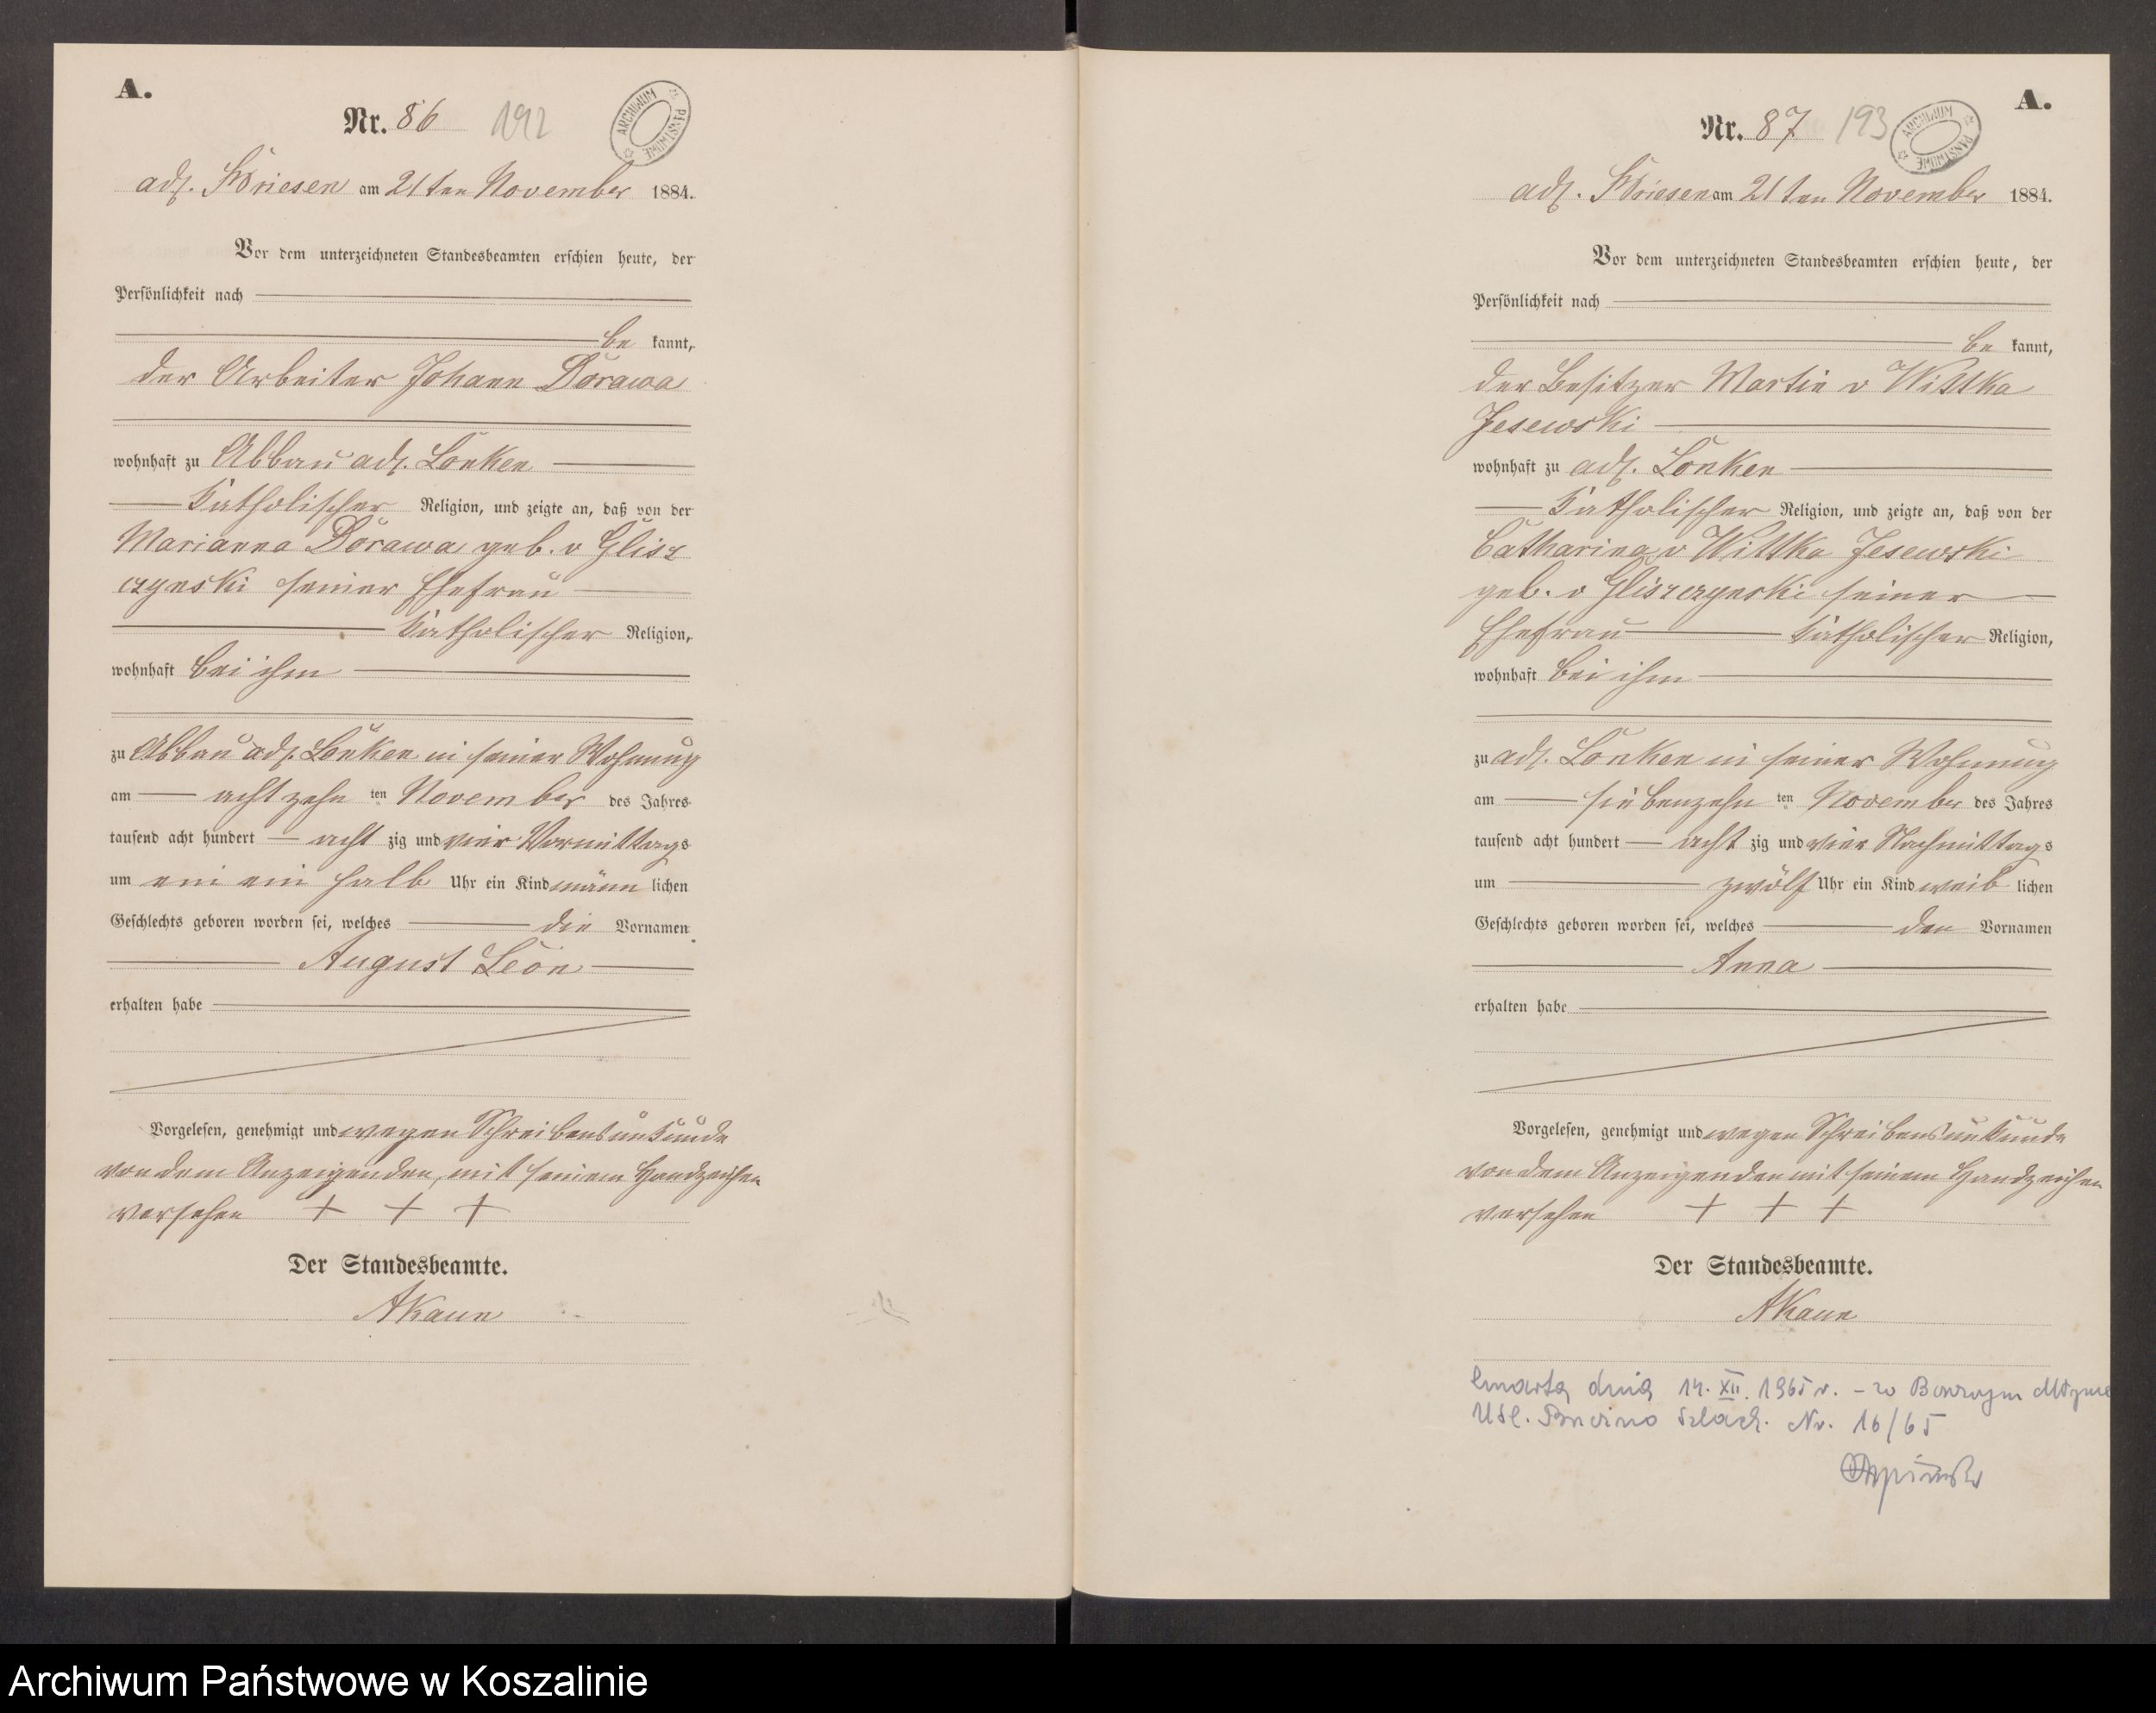 A.
Nr. 86 192
ARCHIWUM PAŃSTWOWE
adl. Briesen am 21ten November 1884.
Vor dem unterzeichneten Standesbeamten erschien heute, der
Persönlichkeit nach
be kannt,
der Arbeiter Johann Dorawa
wohnhaft zu Abbau adl. Lonken
katholischer Religion, und zeigte an, daß von der
Marianna Dorawa geb. v Glisz
czynski seiner Ehefrau
katholischer Religion,
wohnhaft bei ihm
zu Abbau adl. Lonken in seiner Wohnung
am achtzehn ten November des Jahres
tausend acht hundert acht zig und vier Vormittags
um ein ein halb Uhr ein Kind männ lichen
Geschlechts geboren worden sei, welches die Vornamen
August Leon
erhalten habe
Vorgelesen, genehmigt und wegen Schreibensunkunde
von dem Anzeigenden, mit seinem Handzeichen
versehen + + +
Der Standesbeamte.
AKaun
A.
Nr. 87 193
ARCHIWUM PAŃSTWOWE
adl. Briesen am 21ten November 1884.
Vor dem unterzeichneten Standesbeamten erschien heute, der
Persönlichkeit nach
be kannt,
der Besitzer Martin v Wittka
Jesewski
wohnhaft zu adl. Lonken
katholischer Religion, und zeigte an, daß von der
Catharina v Wittka Jesewski
geb. v Gliszczynski seiner
Ehefrau katholischer Religion,
wohnhaft bei ihm
zu adl. Lonken in seiner Wohnung
am siebenzehn ten November des Jahres
tausend acht hundert acht zig und vier Nachmittags
um zwölf Uhr ein Kind weib lichen
Geschlechts geboren worden sei, welches den Vornamen
Anna
erhalten habe
Vorgelesen, genehmigt und wegen Schreibensunkunde
von dem Anzeigenden mit seinem Handzeichen
versehen + + +
Der Standesbeamte.
AKaun
Zmarła dnia 14. XII. 1965 r. - w Borowym Młynie
USC. Brzeźno Szlach. Nr. 16/65
Archiwum Państwowe w Koszalinie